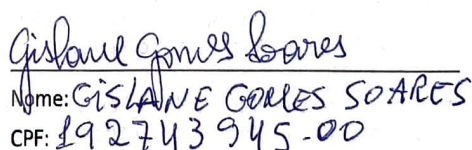 Gislane Gomes Soares
Nome: GISLANE GOMES SOARES
CPF: 192743945-00